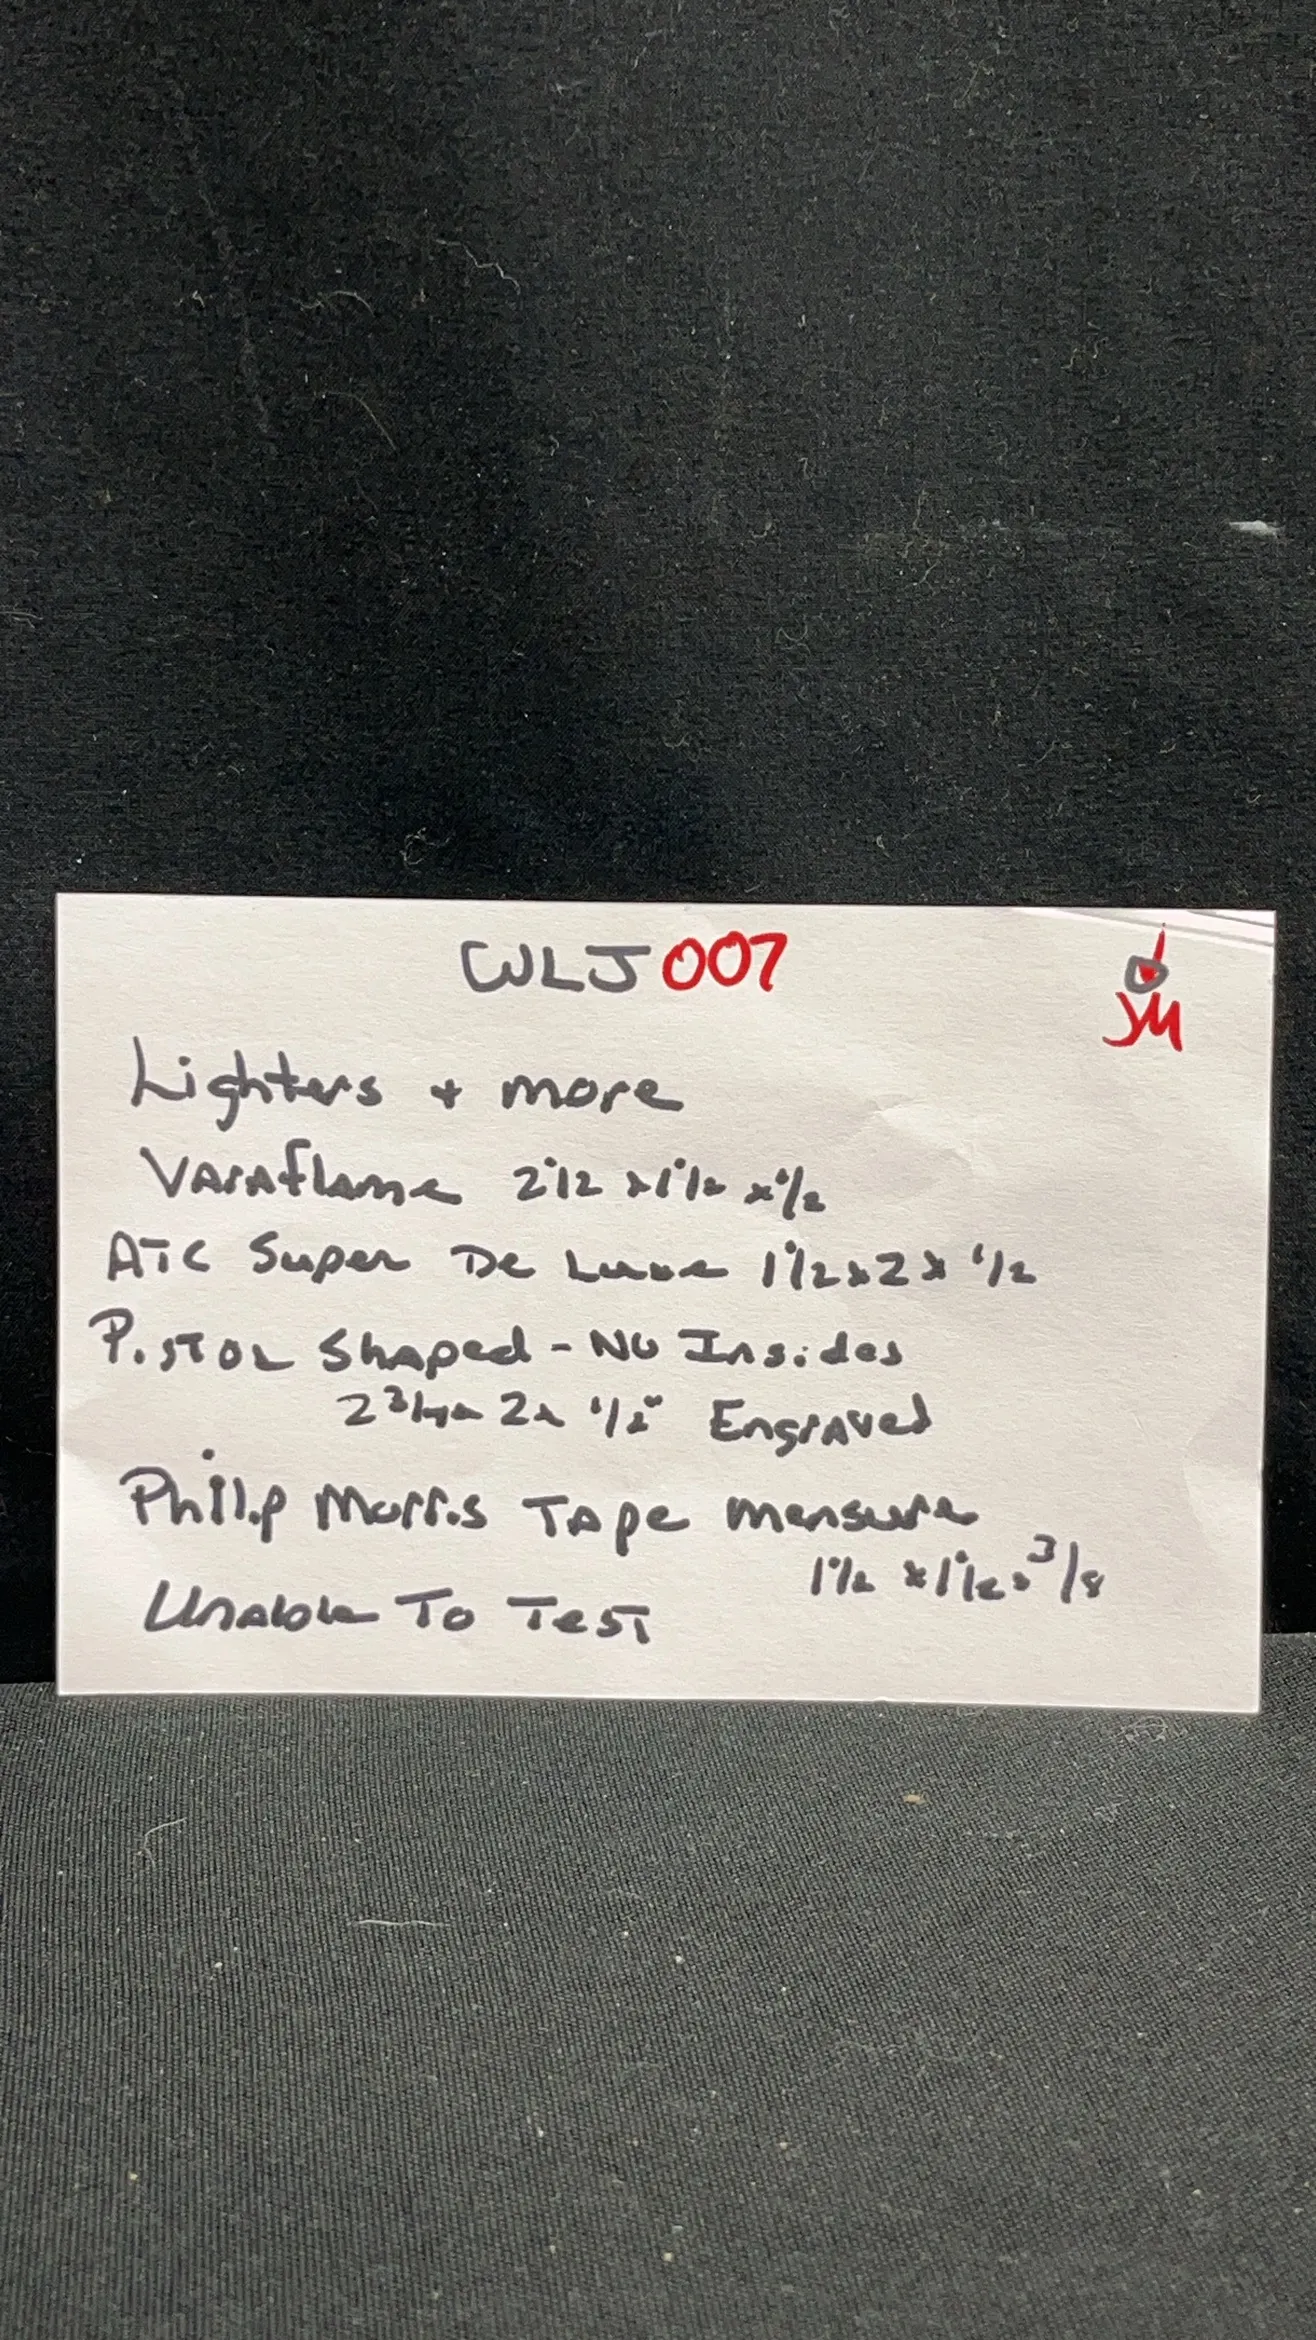 WLJ 007
JM
Lighters + more
Varaflame 2 1/2 x 1 1/2 x 1/2
ATC Super De Luxe 1 1/2 x 2 x 1/2
Pistol Shaped - No Insides
2 3/4 x 2 x 1/2" Engraved
Philip Morris Tape measure
1 1/2 x 1 1/2 x 3/8
Unable To Test